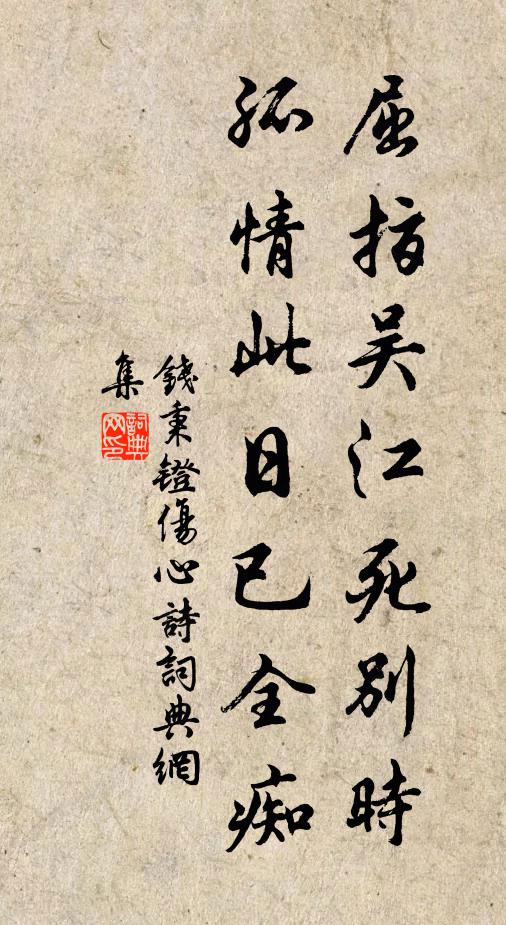 屈指吴江死别時
孤情此日已全痴
錢秉鐙傷心詩詞典網
集
詞典網印